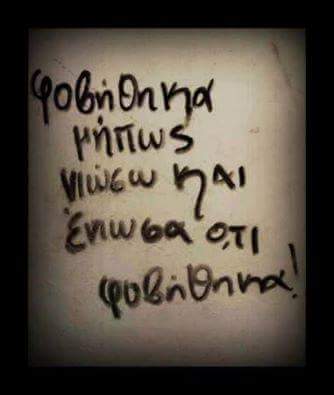 φοβήθηκα
μήπως
νιώσω και
ένιωσα ό,τι
φοβήθηκα!